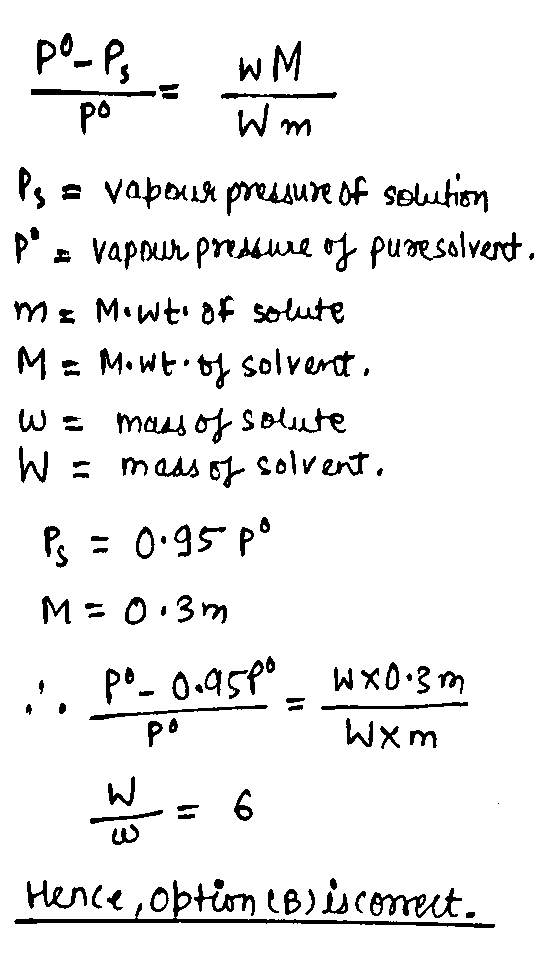 P⁰ - Pₛ / P⁰ = wM / Wm
Pₛ = vapour pressure of solution
P⁰ = vapour pressure of pure solvent.
m = M.wt. of solute
M = M.wt. of solvent.
w = mass of solute
W = mass of solvent.
Pₛ = 0.95 P⁰
M = 0.3m
∴ P⁰ - 0.95P⁰ / P⁰ = w×0.3m / W×m
W / w = 6
Hence, option (B) is correct.